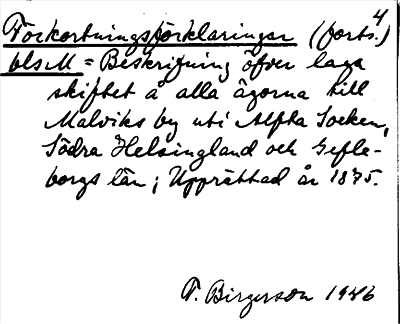 4
Förkortningsförklaringar (forts.)
blsM = Beskrifning öfver laga
skiftet å alla ägorna till
Malviks by uti Alfta Socken,
Södra Helsingland och Gefle-
borgs län; Upprättad år 1875.
T. Birgerson 1946